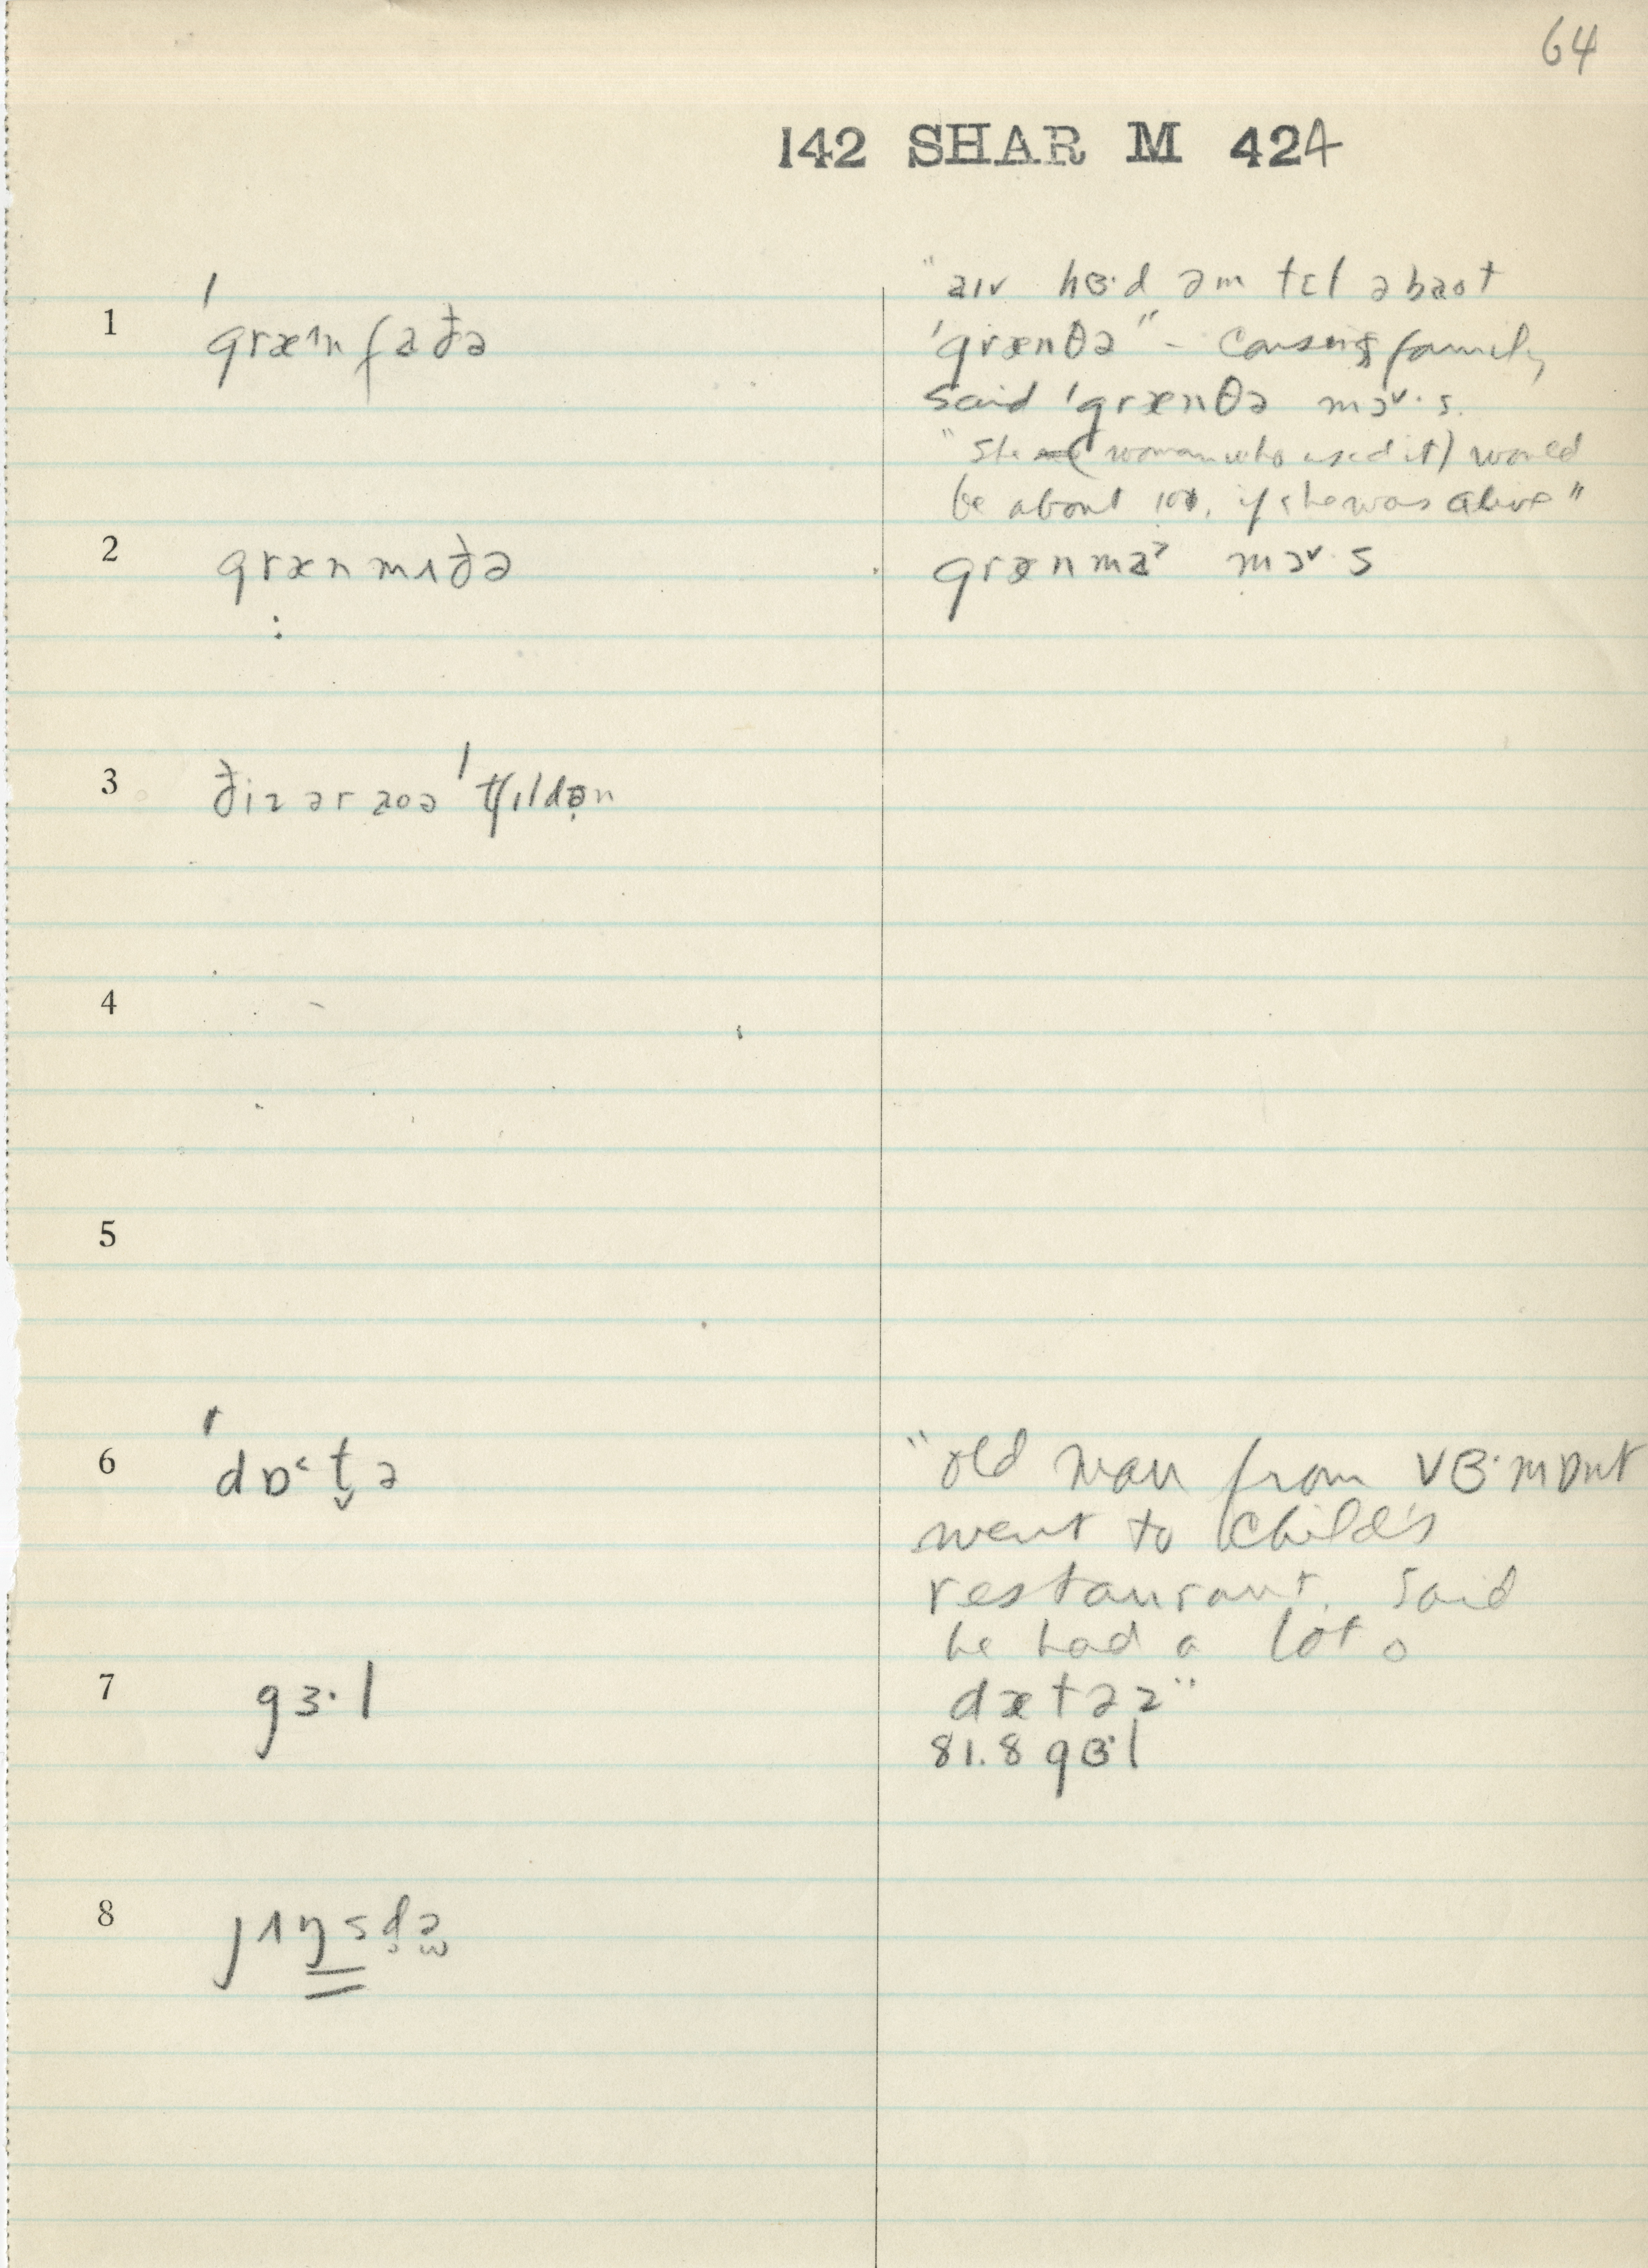 64
142 SHAR M 424
"aɪv hɞ·d əm tɛl əbaot
1 ˈgræ^n faðə
ˈgrænθə" – Cousins family
said ˈgrænθə mɔ˅·s.
"She (woman who used it) would
be about 100, if she was alive"
2 grænmʌðə
grænmaˀ mɔ˅·s
:
3 ðiz ər aoə ˈtʃɪldən
4
5
6 ˈdɒ˂t̬ə
"old man from vɞ·mɒnt
went to Child's
restaurant. Said
he had a lot o
7 gɜ·l
dætəz"
81.8 gɞ·l
8 jʌŋsd̥ə